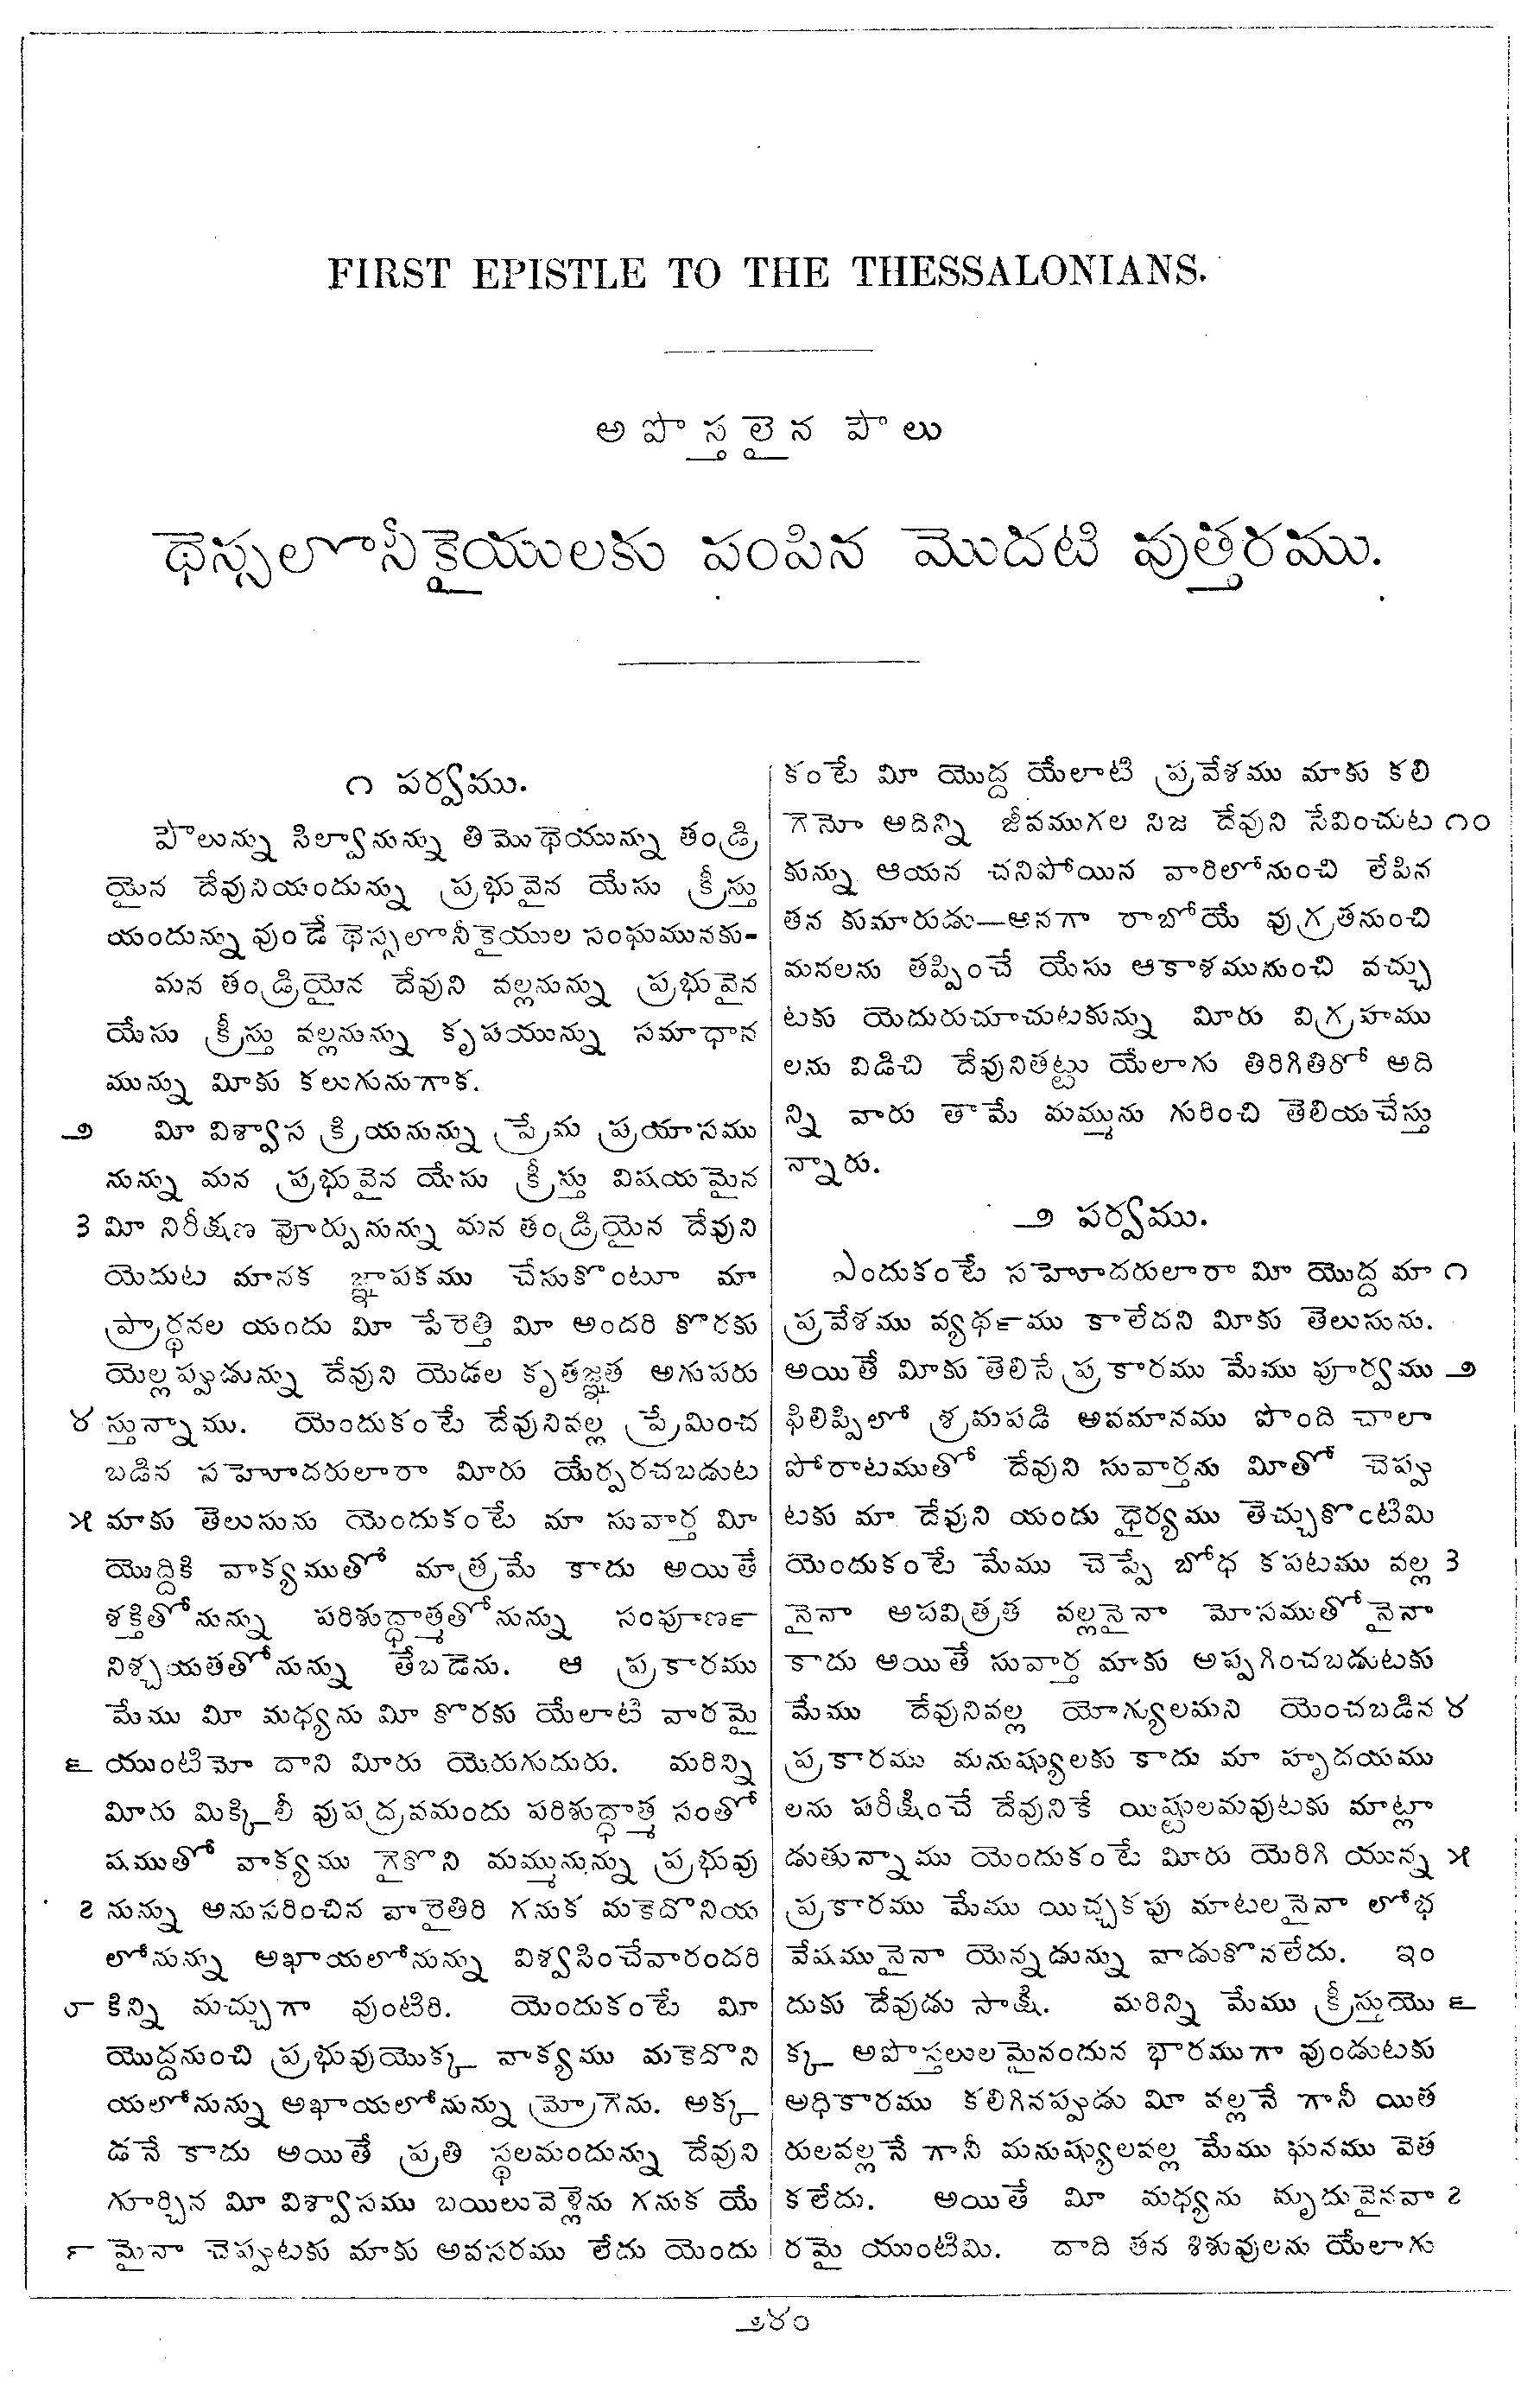 FIRST EPISTLE TO THE THESSALONIANS.
అపొస్తలైన పౌలు
థెస్సలొనీకైయులకు పంపిన మొదటి పుత్తరము.
౧ పర్వము.
పౌలున్ను సిల్వానున్ను తిమొథెయున్ను తండ్రి
యైన దేవునియందున్ను ప్రభువైన యేసు క్రీస్తు
యందున్ను వుండే థెస్సలొనీకైయుల సంఘమునకు-
మన తండ్రియైన దేవుని వల్లనున్ను ప్రభువైన
యేసు క్రీస్తు వల్లనున్ను కృపయున్ను సమాధాన
మున్ను మీకు కలుగునుగాక.
౨ మీ విశ్వాస క్రియనున్ను ప్రేమ ప్రయాసము
నున్ను మన ప్రభువైన యేసు క్రీస్తు విషయమైన
౩ మీ నిరీక్షణ వోర్పునున్ను మన తండ్రియైన దేవుని
యెదుట మానక జ్ఞాపకము చేసుకొంటూ మా
ప్రార్థనల యందు మీ పేరెత్తి మీ అందరి కొరకు
యెల్లప్పుడున్ను దేవుని యెడల కృతజ్ఞత అగుపరు
౪ స్తున్నాము. యెందుకంటే దేవునివల్ల ప్రేమించ
బడిన సహోదరులారా మీరు యేర్పరచబడుట
౫ మాకు తెలుసును యెందుకంటే మా సువార్త మీ
యొద్దికి వాక్యముతో మాత్రమే కాదు అయితే
శక్తితోనున్ను పరిశుద్ధాత్మతోనున్ను సంపూణ౯
నిశ్చయతతోనున్ను తేబడెను. ఆ ప్రకారము
మేము మీ మధ్యను మీ కొరకు యేలాటి వారమై
౬ యుంటిమో దాని మీరు యెరుగుదురు. మరిన్ని
మీరు మిక్కిలీ వుపద్రవమందు పరిశుద్ధాత్మ సంతో
షముతో వాక్యము గైకొని మమ్మునున్ను ప్రభువు
౭ నున్ను అనుసరించిన వారైతిరి గనుక మకెదొనియ
లోనున్ను అఖాయలోనున్ను విశ్వసించేవారందరి
౮ కిన్ని మచ్చుగా వుంటిరి. యెందుకంటే మీ
యొద్దనుంచి ప్రభువుయొక్క వాక్యము మకెదొని
యలోనున్ను అఖాయలోనున్ను మ్రోగెను. అక్క
డనే కాదు అయితే ప్రతి స్థలమందున్ను దేవుని
గూర్చిన మీ విశ్వాసము బయిలువెళ్లెను గనుక యే
౯ మైనా చెప్పుటకు మాకు అవసరము లేదు యెందు
కంటే మీ యొద్ద యేలాటి ప్రవేశము మాకు కలి
గెనో అదిన్ని జీవముగల నిజ దేవుని సేవించుట ౧౦
కున్ను ఆయన చనిపోయిన వారిలోనుంచి లేపిన
తన కుమారుడు—అనగా రాబోయే వుగ్రతనుంచి
మనలను తప్పించే యేసు ఆకాశమునుంచి వచ్చు
టకు యెదురుచూచుటకున్ను మీరు విగ్రహము
లను విడిచి దేవునితట్టు యేలాగు తిరిగితిరో అది
న్ని వారు తామే మమ్మును గురించి తెలియచేస్తు
న్నారు.
౨ పర్వము.
ఎందుకంటే సహోదరులారా మీ యొద్ద మా ౧
ప్రవేశము వ్యథ౯ము కాలేదని మీకు తెలుసును.
అయితే మీకు తెలిసే ప్రకారము మేము పూర్వము ౨
ఫిలిప్పిలో శ్రమపడి అవమానము పొంది చాలా
పోరాటముతో దేవుని సువార్తను మీతో చెప్పు
టకు మా దేవుని యందు ధైర్యము తెచ్చుకొఁటిమి
యెందుకంటే మేము చెప్పే బోధ కపటము వల్ల ౩
నైనా అపవిత్రత వల్లనైనా మోసముతోనైనా
కాదు అయితే సువార్త మాకు అప్పగించబడుటకు
మేము దేవునివల్ల యోగ్యులమని యెంచబడిన ౪
ప్రకారము మనుష్యులకు కాదు మా హృదయము
లను పరీక్షించే దేవునికే యిష్టులమవుటకు మాట్లా
డుతున్నాము యెందుకంటే మీరు యెరిగి యున్న ౫
ప్రకారము మేము యిచ్చకపు మాటలనైనా లోభ
వేషమునైనా యెన్నడున్ను వాడుకొనలేదు. ఇం
దుకు దేవుడు సాక్షి. మరిన్ని మేము క్రీస్తుయొ ౬
క్క అపొస్తలులమైనందున భారముగా వుండుటకు
అధికారము కలిగినప్పుడు మీ వల్లనే గానీ యిత
రులవల్లనే గానీ మనుష్యులవల్ల మేము ఘనము వెత
కలేదు. అయితే మీ మధ్యను మృదువైనవా ౭
రమై యుంటిమి. దాది తన శిశువులను యేలాగు
౨౪౦